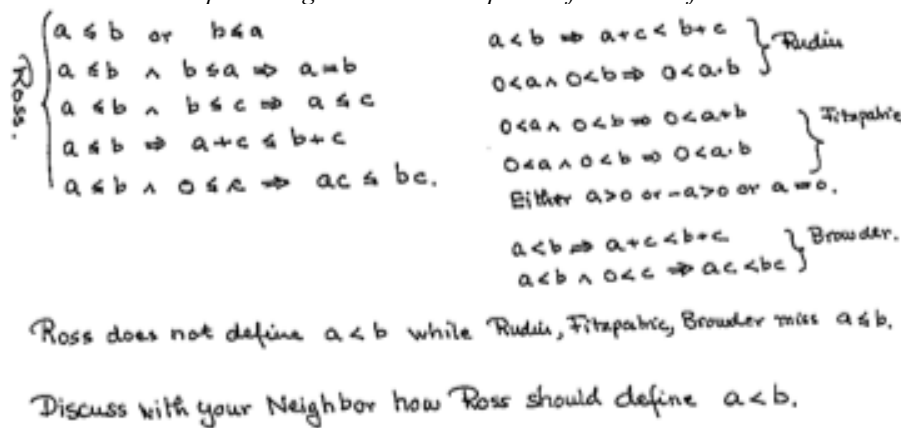 Ross.
a ≤ b or b ≤ a
a ≤ b ∧ b ≤ a ⇒ a = b
a ≤ b ∧ b ≤ c ⇒ a ≤ c
a ≤ b ⇒ a+c ≤ b+c
a ≤ b ∧ 0 ≤ c ⇒ ac ≤ bc.
a < b ⇒ a+c < b+c
0<a ∧ 0<b ⇒ 0<a·b
Rudin
0<a ∧ 0<b ⇒ 0<a+b
0<a ∧ 0<b ⇒ 0<a·b
Fitzpatric
Either a>0 or -a>0 or a=0.
a<b ⇒ a+c<b+c
a<b ∧ 0<c ⇒ ac<bc
Browder.
Ross does not define a<b while Rudin, Fitzpatric, Browder miss a≤b.
Discuss with your Neighbor how Ross should define a<b.